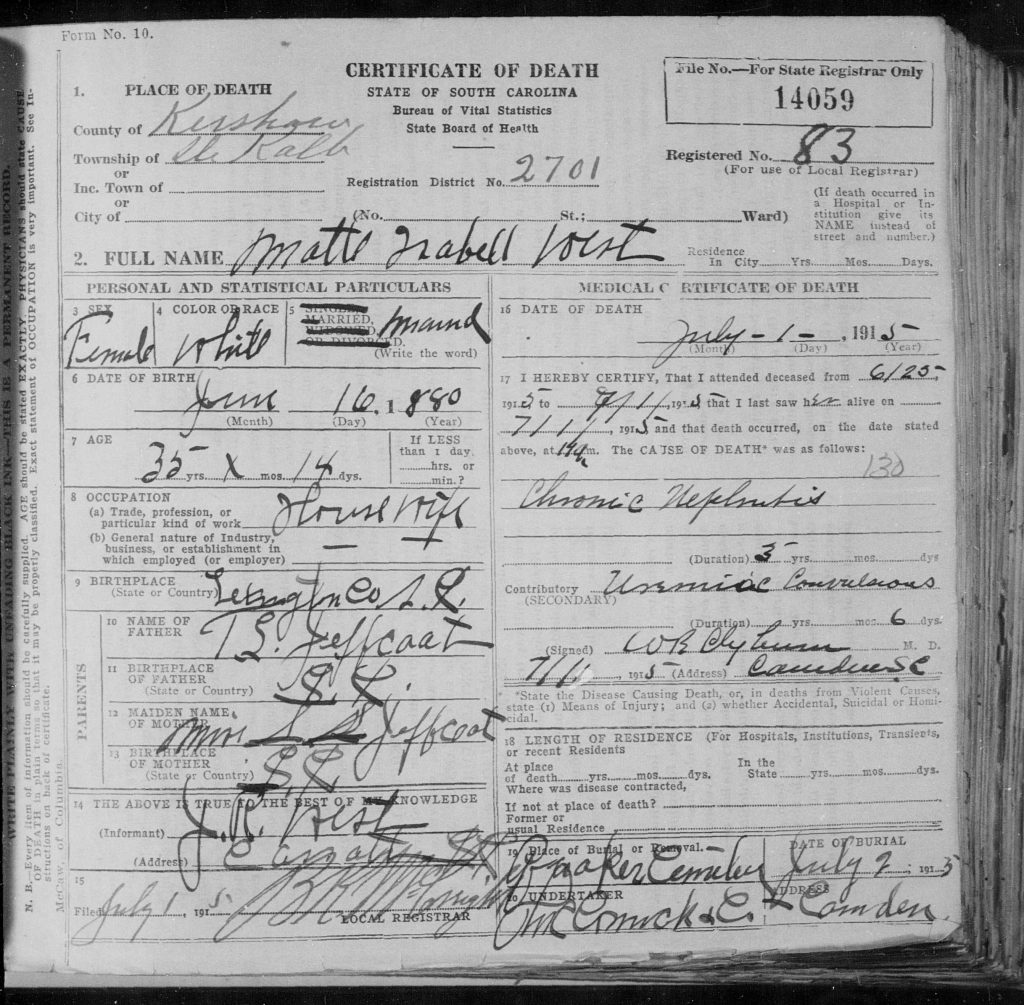 Form No. 10.
CERTIFICATE OF DEATH
STATE OF SOUTH CAROLINA
Bureau of Vital Statistics
State Board of Health
File No.—For State Registrar Only
14059
1. PLACE OF DEATH
County of Kershaw
Township of De Kalb
or
Inc. Town of
or
City of
Registration District No. 2701
Registered No. 83
(For use of Local Registrar)
(No. St.; Ward)
(If death occurred in
a Hospital or In-
stitution give its
NAME instead of
street and number.)
2. FULL NAME Matte Izabell West
Residence
In City Yrs. Mos. Days.
PERSONAL AND STATISTICAL PARTICULARS
3 SEX
Female
4 COLOR OR RACE
White
5 SINGLE,
MARRIED,
WIDOWED,
OR DIVORCED.
Married
(Write the word)
6 DATE OF BIRTH
June 16, 1880
(Month) (Day) (Year)
7 AGE
35 yrs. X mos. 14 dys.
If LESS
than 1 day,
hrs. or
min.?
8 OCCUPATION
(a) Trade, profession, or
particular kind of work House Wife
(b) General nature of Industry,
business, or establishment in
which employed (or employer) —
9 BIRTHPLACE
(State or Country) Lexington Co S.C.
PARENTS
10 NAME OF
FATHER
T.S. Jeffcoat
11 BIRTHPLACE
OF FATHER
(State or Country) S.C.
12 MAIDEN NAME
OF MOTHER
Jeffcoat
13 BIRTHPLACE
OF MOTHER
(State or Country) S.C.
14 THE ABOVE IS TRUE TO THE BEST OF MY KNOWLEDGE
(Informant) J.R. West
(Address)
15
Filed July 1, 1915
LOCAL REGISTRAR
MEDICAL CERTIFICATE OF DEATH
16 DATE OF DEATH
July - 1 - , 1915
(Month) (Day) (Year)
17 I HEREBY CERTIFY, That I attended deceased from 6/25
1915 to 7/1/, 1915 that I last saw her alive on
7/1/, 1915 and that death occurred, on the date stated
above, at m. The CAUSE OF DEATH* was as follows:
130
Chronic Nephritis
(Duration) 3 yrs. mos. dys
Contributory Uremiac Convulsions
(SECONDARY)
(Duration) yrs. mos. 6 dys.
(Signed) W R Clyburn M. D.
7/1/, 1915 (Address) Camden S.C
*State the Disease Causing Death, or, in deaths from Violent Causes,
state (1) Means of Injury; and (2) whether Accidental, Suicidal or Homi-
cidal.
18 LENGTH OF RESIDENCE (For Hospitals, Institutions, Transients,
or recent Residents
At place
of death yrs. mos. dys.
In the
State yrs. mos. dys.
Where was disease contracted,
If not at place of death?
Former or
usual Residence
19 Place of Burial or Removal.
Quaker Cemetery
DATE OF BURIAL
July 2, 1915
20 UNDERTAKER
ADDRESS
Camden
WRITE PLAINLY WITH UNFADING BLACK INK—THIS IS A PERMANENT RECORD.
N. B.—Every item of information should be carefully supplied. AGE should be stated EXACTLY. PHYSICIANS should state CAUSE
OF DEATH in plain terms so that it may be properly classified. Exact statement of OCCUPATION is very important. See In-
structions on back of certificate.
McCaw, of Columbia.